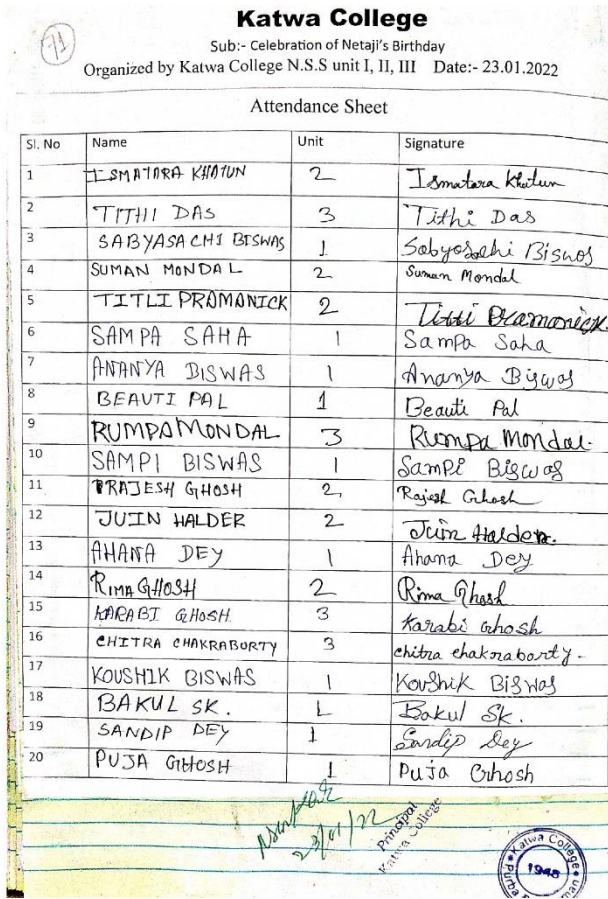 71
Katwa College
Sub:- Celebration of Netaji's Birthday
Organized by Katwa College N.S.S unit I, II, III Date:- 23.01.2022
Attendance Sheet
Sl. No Name Unit Signature
1 ISMATARA KHATUN 2 Ismatara Khatun
2 TITHI DAS 3 Tithi Das
3 SABYASACHI BISWAS 1 Sabyosachi Biswos
4 SUMAN MONDAL 2 Suman Mondal
5 TITLI PRAMANICK 2 Titli Pramanick.
6 SAMPA SAHA 1 Sampa Saha
7 ANANYA BISWAS 1 Ananya Biswas
8 BEAUTI PAL 1 Beauti Pal
9 RUMPA MONDAL 3 Rumpa Mondal.
10 SAMPI BISWAS 1 Sampi Biswas
11 RAJESH GHOSH 2 Rajesh Ghosh
12 JUIN HALDER 2 Juin Halder.
13 AHANA DEY 1 Ahana Dey
14 RIMA GHOSH 2 Rima Ghosh
15 KARABI GHOSH 3 Karabi Ghosh
16 CHITRA CHAKRABORTY 3 chitra chakraborty.
17 KOUSHIK BISWAS 1 Koushik Biswas
18 BAKUL SK. 1 Bakul Sk.
19 SANDIP DEY 1 Sandip Dey
20 PUJA GHOSH 1 Puja Ghosh
23/01/22
Principal
Katwa College
Katwa College
1948
Purba